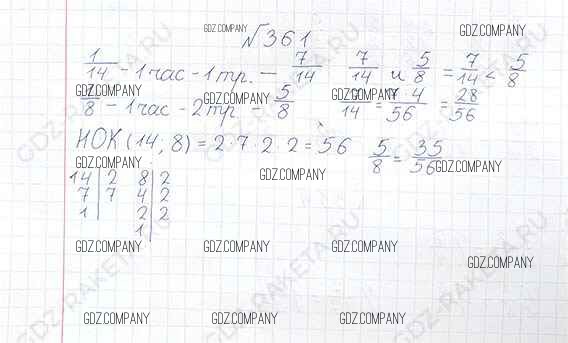 №361
1/14 - 1 час - 1 тр. - 7/14 7/14 и 5/8 = 7/14 < 5/8
/8 - 1 час - 2 тр - 5/8 /14 = 7·4/56 = 28/56
НОК (14, 8) = 2·7·2 2 = 56 5/8 = 35/56
14 | 2 8 | 2
7 | 7 4 | 2
1 | 2 | 2
1 |
GDZ.COMPANY
GDZ.COMPANY GDZ.COMPANY GDZ.COMPANY
GDZ.COMPANY GDZ.COMPANY GDZ.COMPANY
GDZ.COMPANY GDZ.COMPANY GDZ.COMPANY GDZ.COMPANY
GDZ.COMPANY GDZ.COMPANY GDZ.COMPANY
GDZ-RAKETA.RU
GDZ-RAKETA.RU
GDZ-RAKETA.RU
GDZ-RAKETA.RU